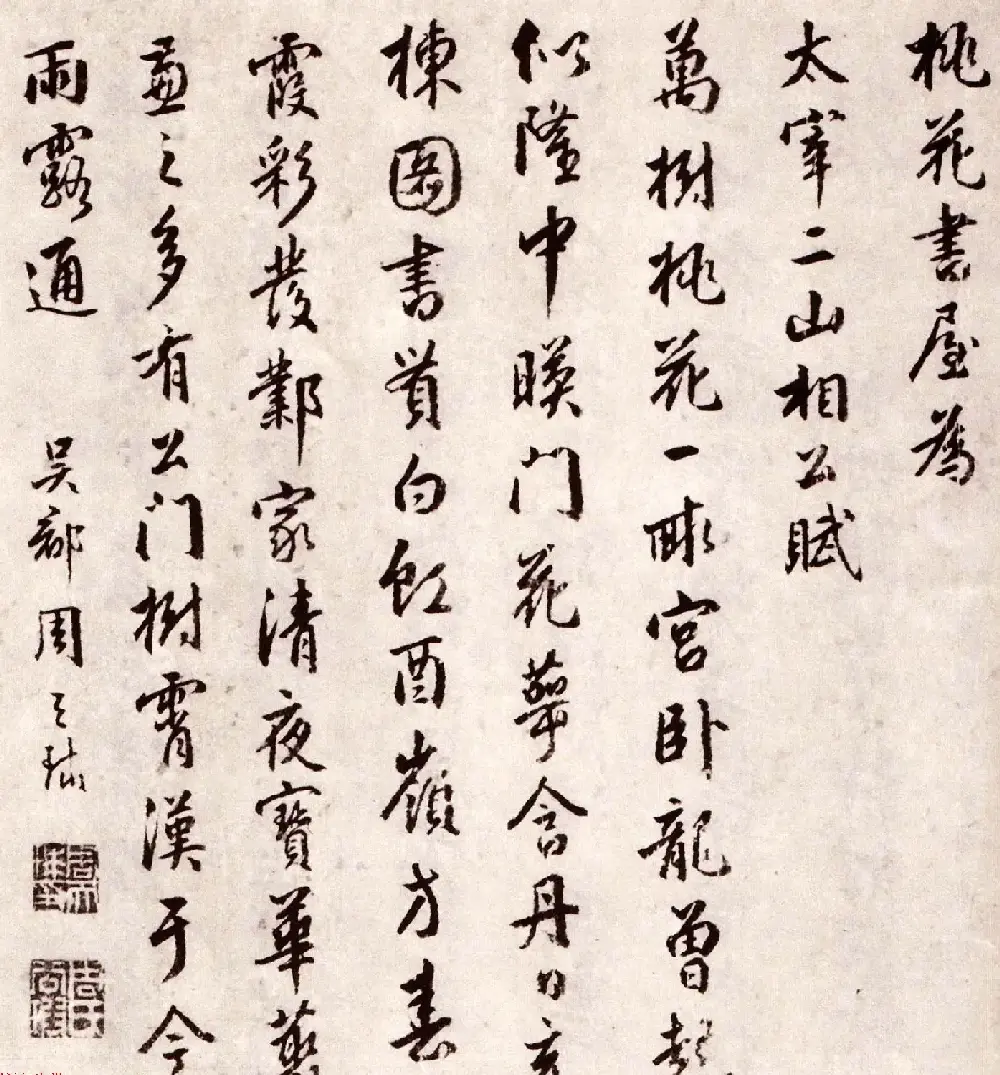 桃花書屋為
太宰二山相公賦
萬樹桃花一畝宮卧龍曾起
似隆中暎門花萼含丹日
棟圖書貫白虹酉嶺方春
霞彩發鄴家清夜寶華
盖之多有公門樹霄漢于今
雨露通
吳郡周之